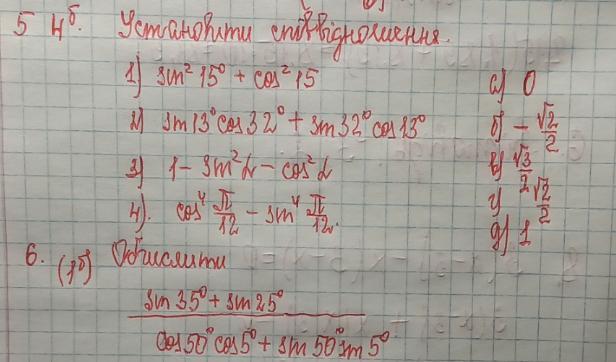 5 4б. Установити співвідношення.
1) sin²15° + cos²15 а) 0
2) sin13°cos32° + sin32°cos13° б) -√2/2
3) 1 - sin²α - cos²α в) √3/2
4). cos⁴ π/12 - sin⁴ π/12. г) √2/2
д) 1
6. (1б) Обчислити
sin35° + sin25°
cos50°cos5° + sin50°sin5°